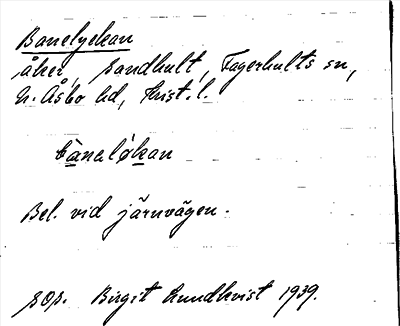 Banelyckan
åker, Sandhult, Fagerhults sn,
N. Åsbo hd, Krist. l.
bànaløkan
Bel. vid järnvägen.
sop. Birgit Lundkvist 1939.